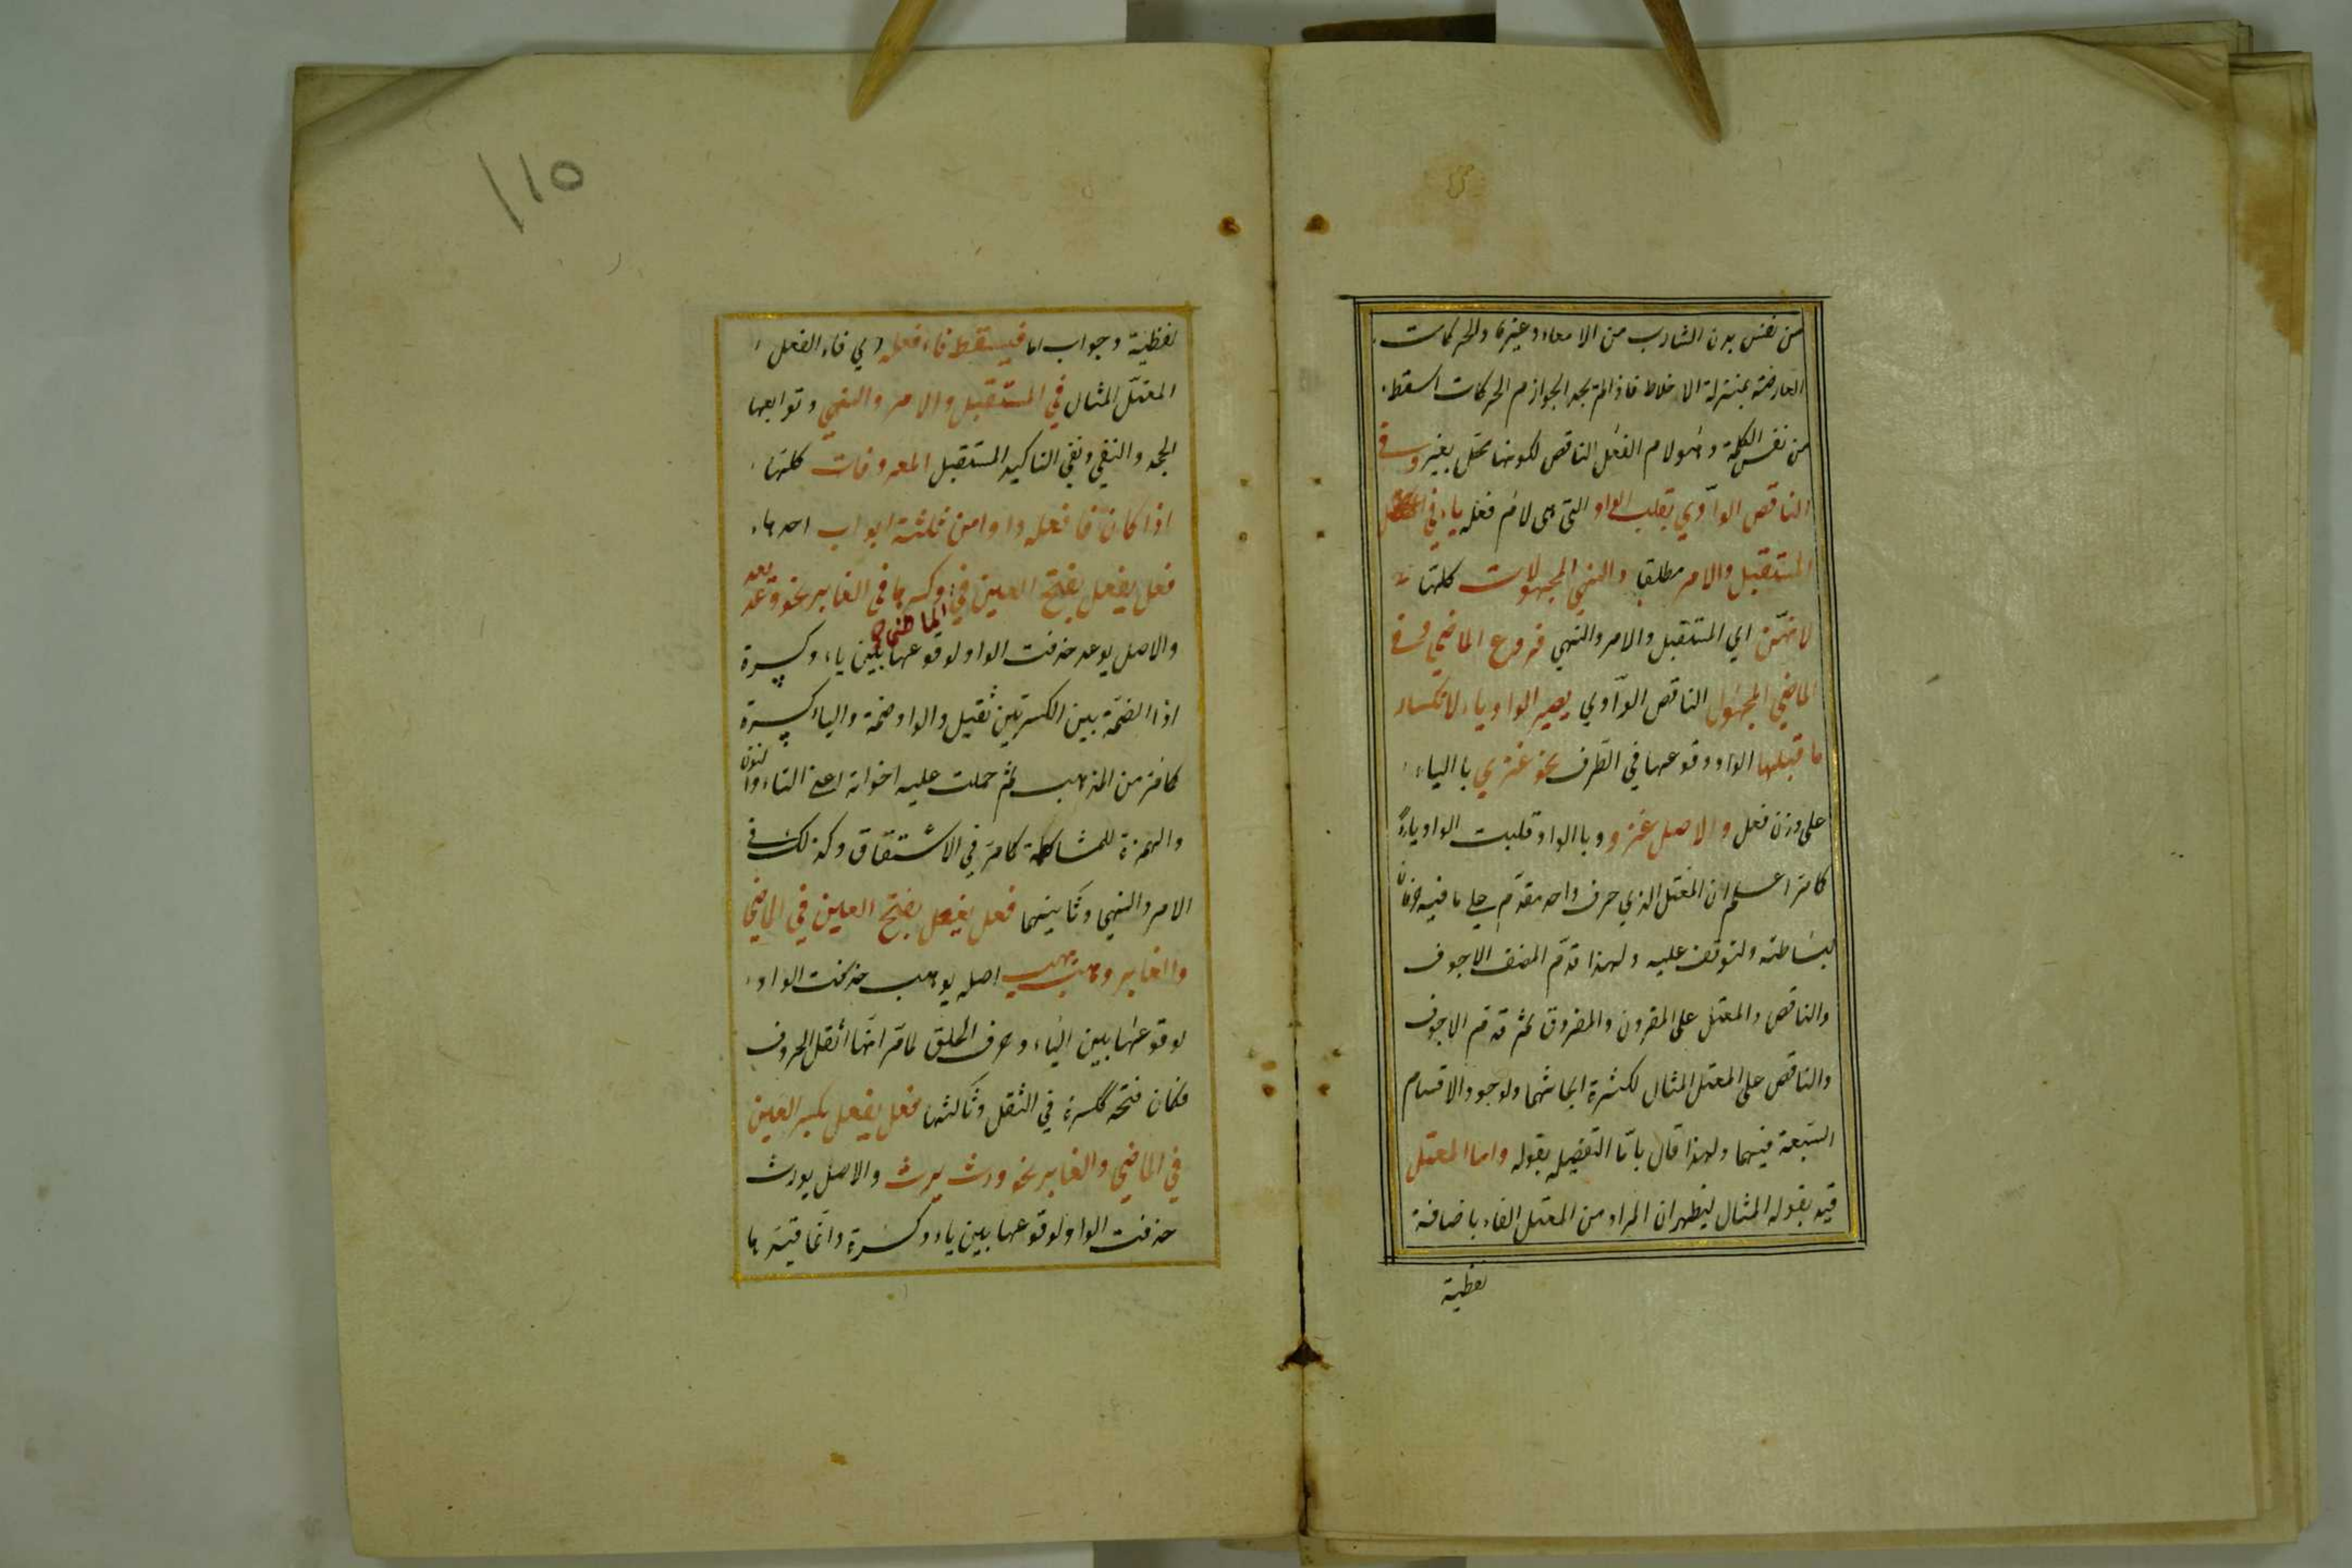 من نفس بدن الشارب من الامعاء وغيره والحركات
العارضة بمنزلة الاخلاط فاذا لم تجد الجوازم الحركات اسقط
من نفس الكلمة وهو لام الفعل الناقص لكونها محل تغير وفى
الناقص الواوي يقلب الواو التى هى لام فعله ياء في
المستقبل والامر مطلقا والنهي المجهولات كلها
لانهن اي المستقبل والامر والنهي فروع الماضي وفى
الماضي المجهول الناقص الواوي يصير الواو ياء لانكسار
ما قبلها الواو ووقوعها في الطرف نحو غزي بالياء
على وزن فعل والاصل غزو وبالواو قلبت الواو ياءً
كما مر اعلم ان المعتل الذي حرف واحد مقدم على ما فيه حرفان
لبساطته ولتوقف عليه ولهذا قدم المصنف الاجوف
والناقص والمعتل على المقرون والمفروق ثم قدم الاجوف
والناقص على المعتل المثال لكثرة ابحاثهما ولوجود الاقسام
السبعة فيهما ولهذا قال باما التفصيله بقوله واما المعتل
قيد بقوله المثال ليظهر ان المراد من المعتل الفاء باضافة
لفظية
١١٥
لفظية وجواب اما فيسقط فاء فعله اي فاء الفعل
المعتل المثال في المستقبل والامر والنهي وتوابعها
الجحد والنفي ونفي التاكيد المستقبل المعروفات كلها
اذا كان فا فعله واوا من ثلثة ابواب احدها
فعل يفعل بفتح العين في الماضى وكسرها في الغابر نحو وعد يعد
والاصل يوعد حذفت الواو لوقوعها بين ياء وكسرة
اذا الضمة بين الكسرتين ثقيل والواو ضمة والياء كسرة
كما مر من المذهب ثم حملت عليه اخواته اعنى التاء والنون
والهمزة للمشاكلة كما مر في الاشتقاق وكذلك في
الامر والنهي وثانيهما فعل يفعل بفتح العين في الماضي
والغابر وهب يهب اصله يوهب حذفت الواو
لوقوعها بين الياء وحرف الحلق لما مر انها اثقل الحروف
فكان فتحه ككسرة في الثقل وثالثها فعل يفعل بكسر العين
في الماضي والغابر نحو ورث يرث والاصل يورث
حذفت الواو لوقوعها بين ياء وكسرة وانما قيدها